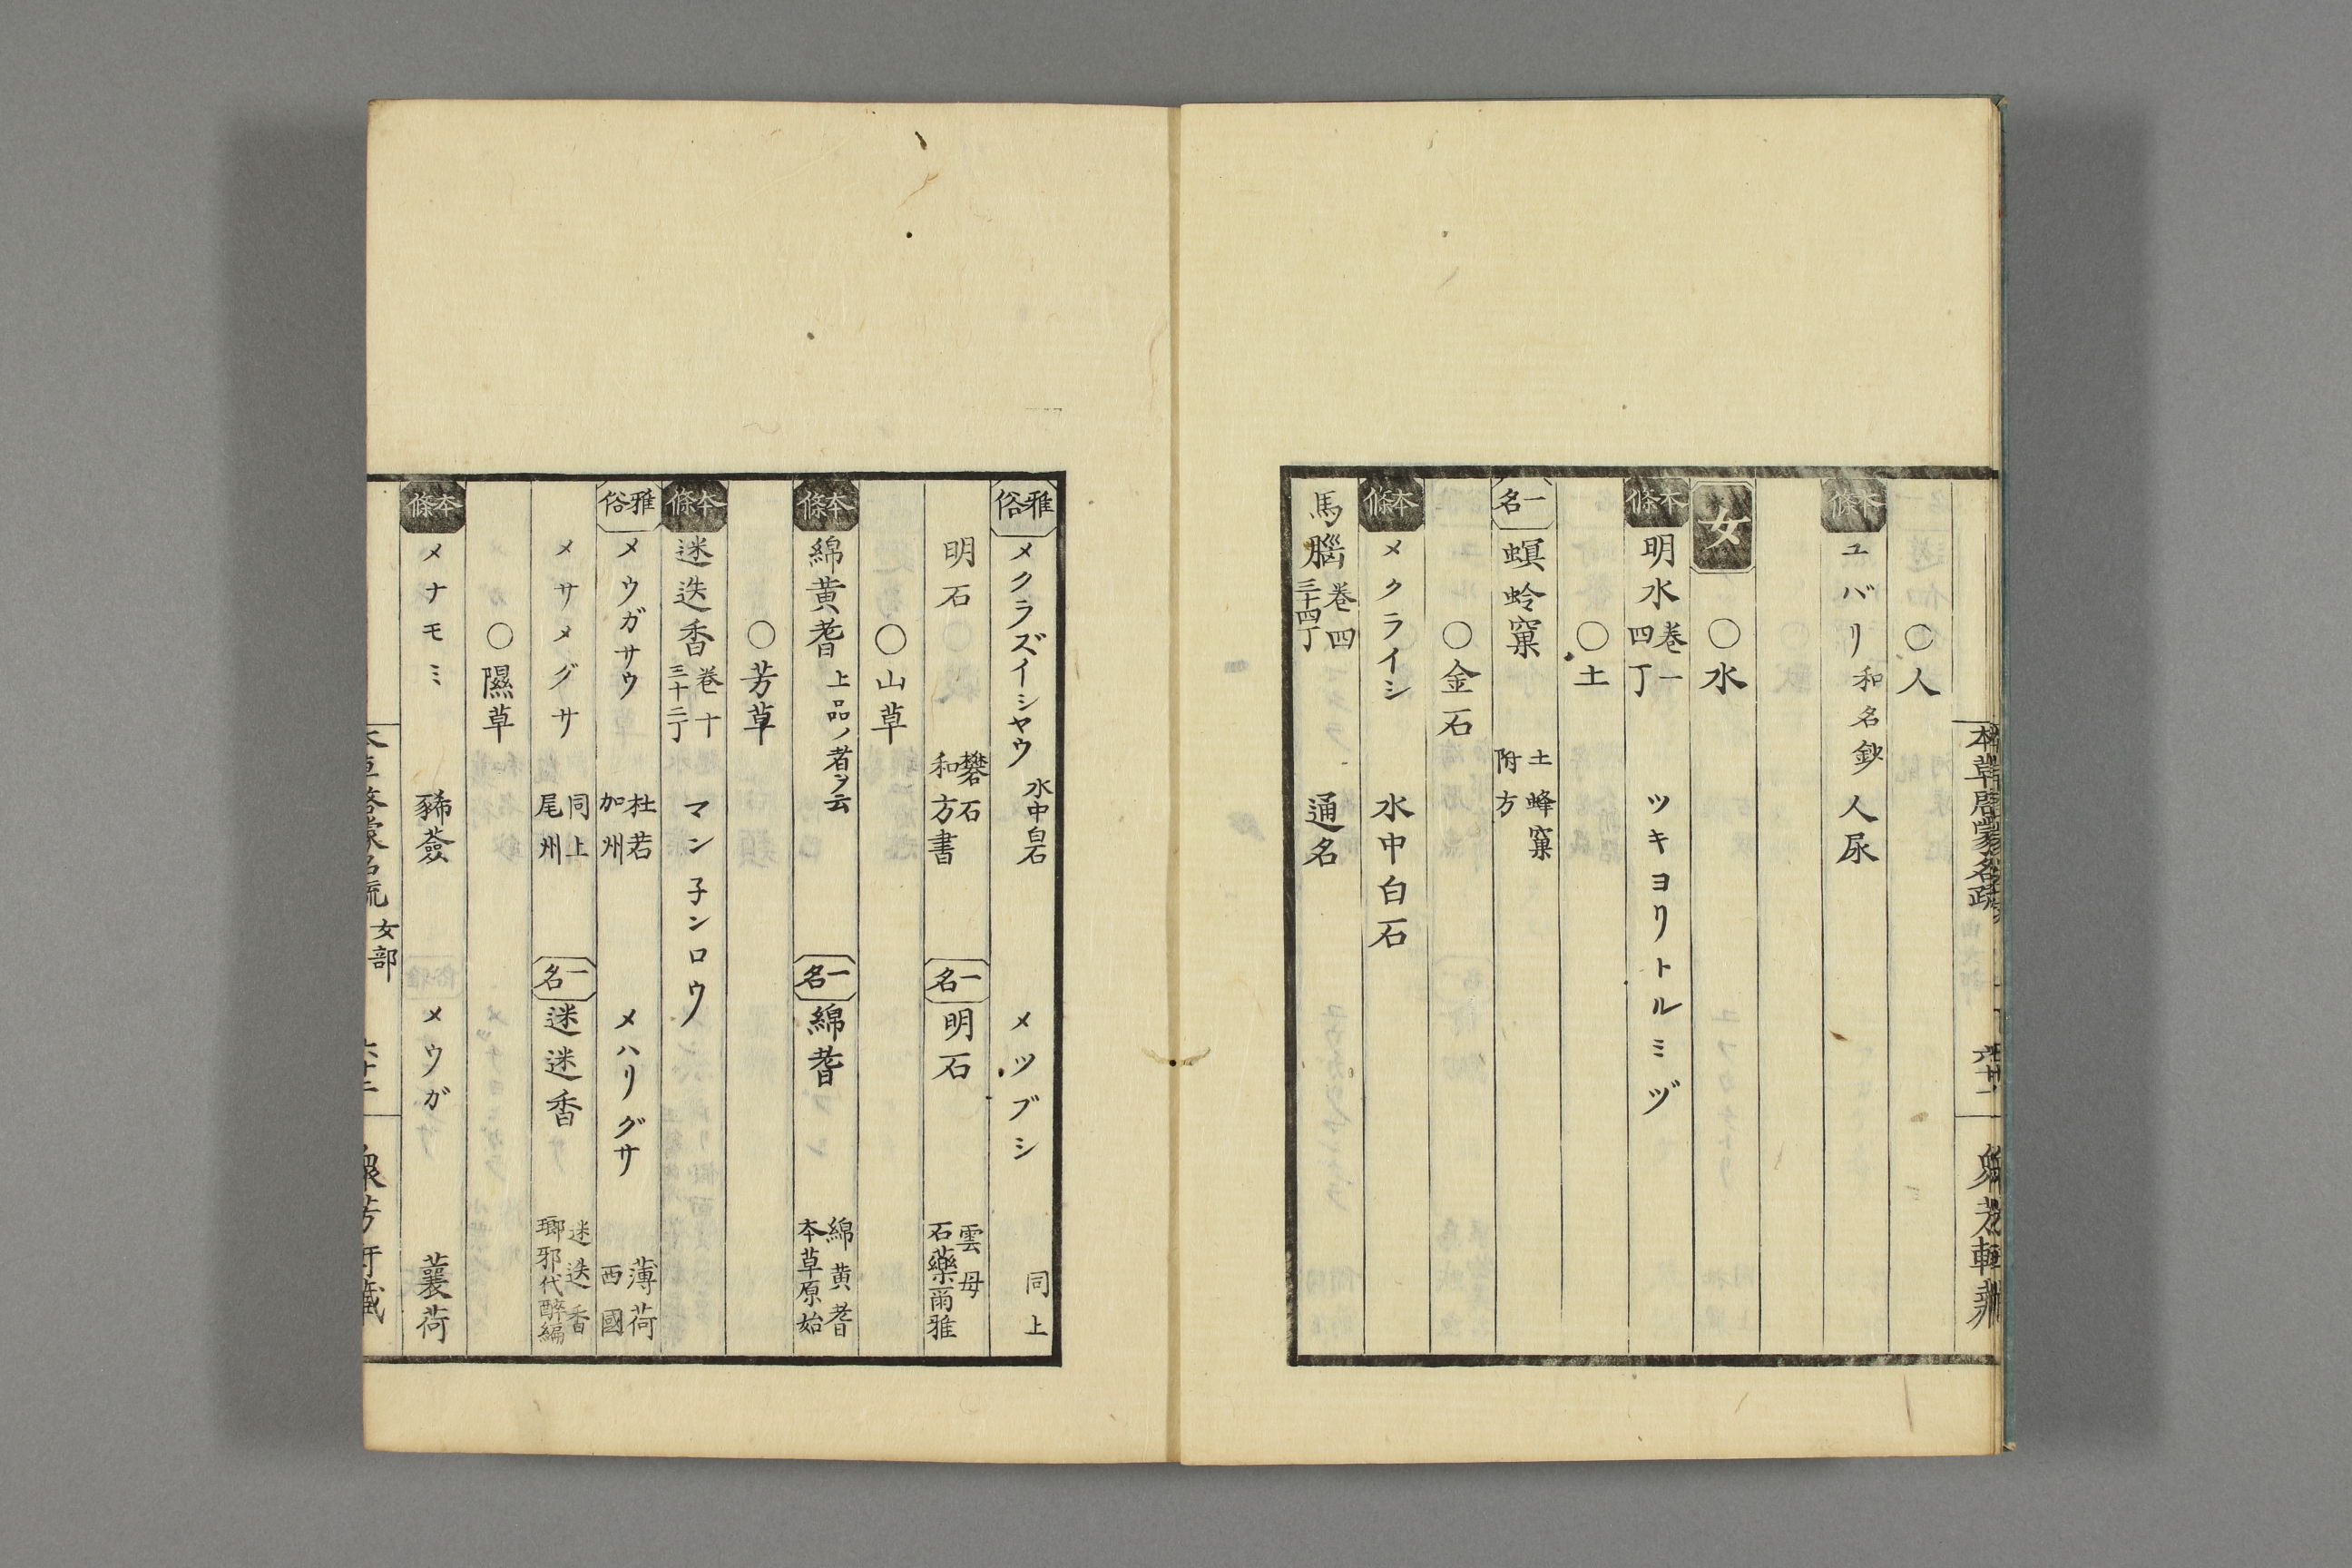 ○人
本條 ユバリ 和名鈔 人尿
女 ○水
本條 明水 巻一四丁 ツキヨリトルミヅ
○土
一名 螟蛉窠 土蜂窠 附方
○金石
本條 メクライシ 水中白石
馬腦 巻四三十四丁 通名
雅俗 メクラズイシヤウ 水中白石 メツブシ 同上
明石 礬石 和方書 一名 明石 雲母 石藥爾雅
○山草
本條 綿黄耆 上品ノ者ヲ云 一名 綿耆 綿黄耆 本草原始
○芳草
本條 迷迭香 巻十三十二丁 マン子ンロウ
雅俗 メウガサウ 杜若 加州 メハリグサ 薄荷 西國
メサメグサ 同上 尾州 一名 迷迷香 迷迭香 瑯邪代醉編
○隰草
本條 メナモミ 豨薟 メウガ 蘘荷
女部